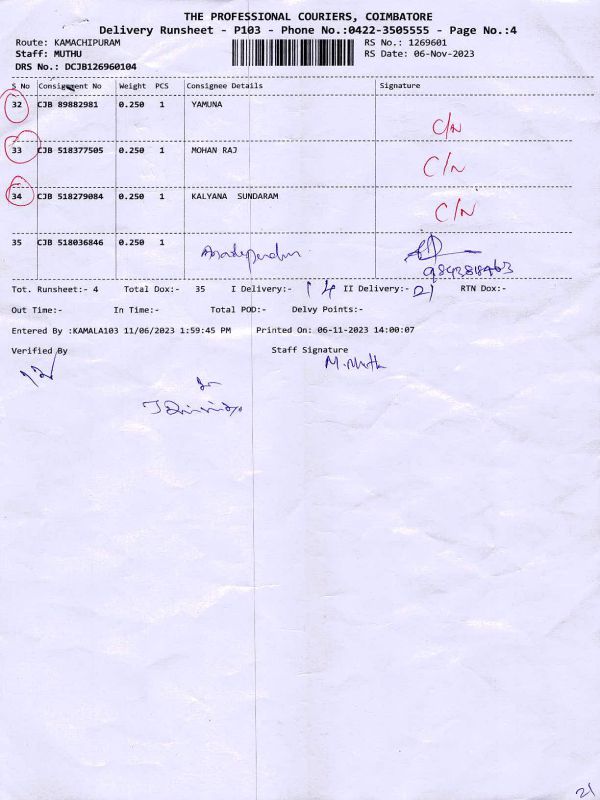 THE PROFESSIONAL COURIERS, COIMBATORE
Delivery Runsheet - P103 - Phone No.:0422-3505555 - Page No.:4
Route: KAMACHIPURAM RS No.: 1269601
Staff: MUTHU RS Date: 06-Nov-2023
DRS No.: DCJB126960104
S No Consignment No Weight PCS Consignee Details Signature
32 CJB 89882981 0.250 1 YAMUNA
C/N
33 CJB 518377505 0.250 1 MOHAN RAJ
C/N
34 CJB 518279084 0.250 1 KALYANA SUNDARAM
C/N
35 CJB 518036846 0.250 1
9842818463
Tot. Runsheet:- 4 Total Dox:- 35 I Delivery:- 14 II Delivery:- 21 RTN Dox:-
Out Time:- In Time:- Total POD:- Delvy Points:-
Entered By :KAMALA103 11/06/2023 1:59:45 PM Printed On: 06-11-2023 14:00:07
Verified By Staff Signature
M.Muth
21